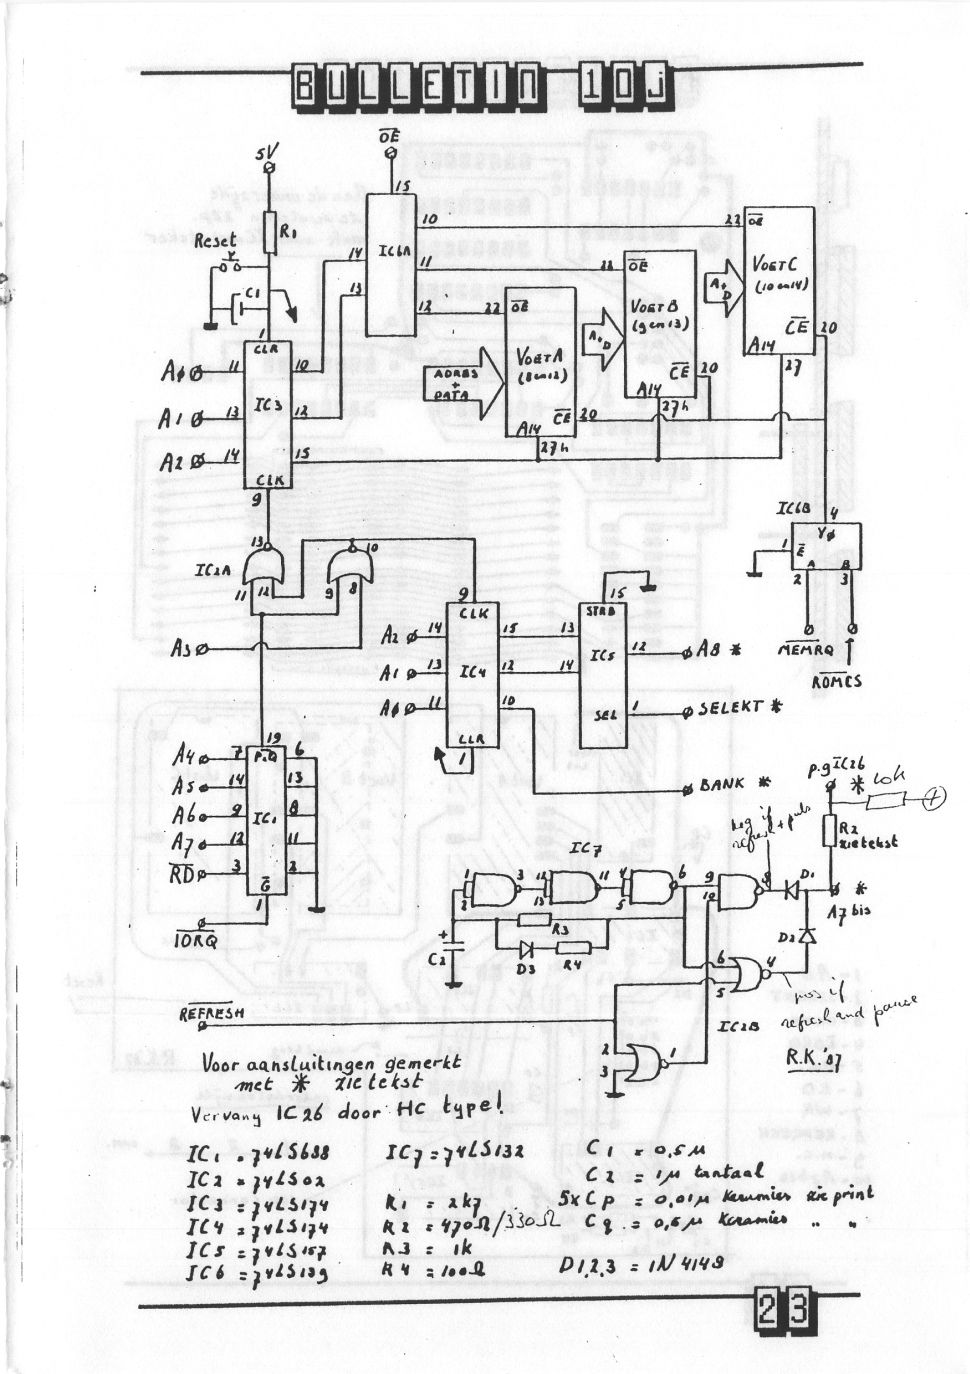 BULLETIN 10J
OE
5V
15
10
22 OE
R1
IC6A
Reset
14
11
22 OE
VOET C
(10en14)
A+D
C1
13
12
22 OE
VOET B
(9en13)
CE 20
1
CLR
A+D
A14
27
AØ 11
10
ADRES
+
DATA
VOET A
(8en12)
CE 20
A1 13
IC3
12
A14
27h
CE 20
A2 14
15
A14
27h
CLK
9
IC6B 4
YØ
1 E
A B
2 3
13
10
IC2A
11 12
9 8
MEMRQ
ROMCS
9
CLK
15
STRB
A3
A2 14
15
13
12
A8 *
A1 13
IC4
12
14
IC5
AØ 11
10
SEL
1
SELEKT *
CLR
1
19
A4 7
P=Q
6
A5 14
13
BANK *
p.9 IC26
*
10k
+
A6 9
IC1
8
A7 12
11
RD 3
2
G
1
IORQ
IC7
neg if
refresh + puls
R2
zie tekst
1
2
3
12
13
11
4
5
6
9
10
8
D1
*
A7 bis
R3
D3
R4
+
C2
D2
6
5
4
IC2B
pos if
refresh and pause
REFRESH
2
3
1
R.K.'87
Voor aansluitingen gemerkt
met * zie tekst
Vervang IC26 door HC type!
IC1 = 74LS688
IC2 = 74LS02
IC3 = 74LS174
IC4 = 74LS174
IC5 = 74LS157
IC6 = 74LS139
IC7 = 74LS132
R1 = 2k7
R2 = 470Ω/330Ω
R3 = 1k
R4 = 100Ω
C1 = 0,5µ
C2 = 1µ tantaal
5x Cp = 0,01µ keramies zie print
Cq = 0,5µ Keramies " "
D1,2,3 = 1N4148
23